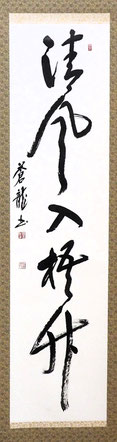 清風入梧竹
蒼龍書